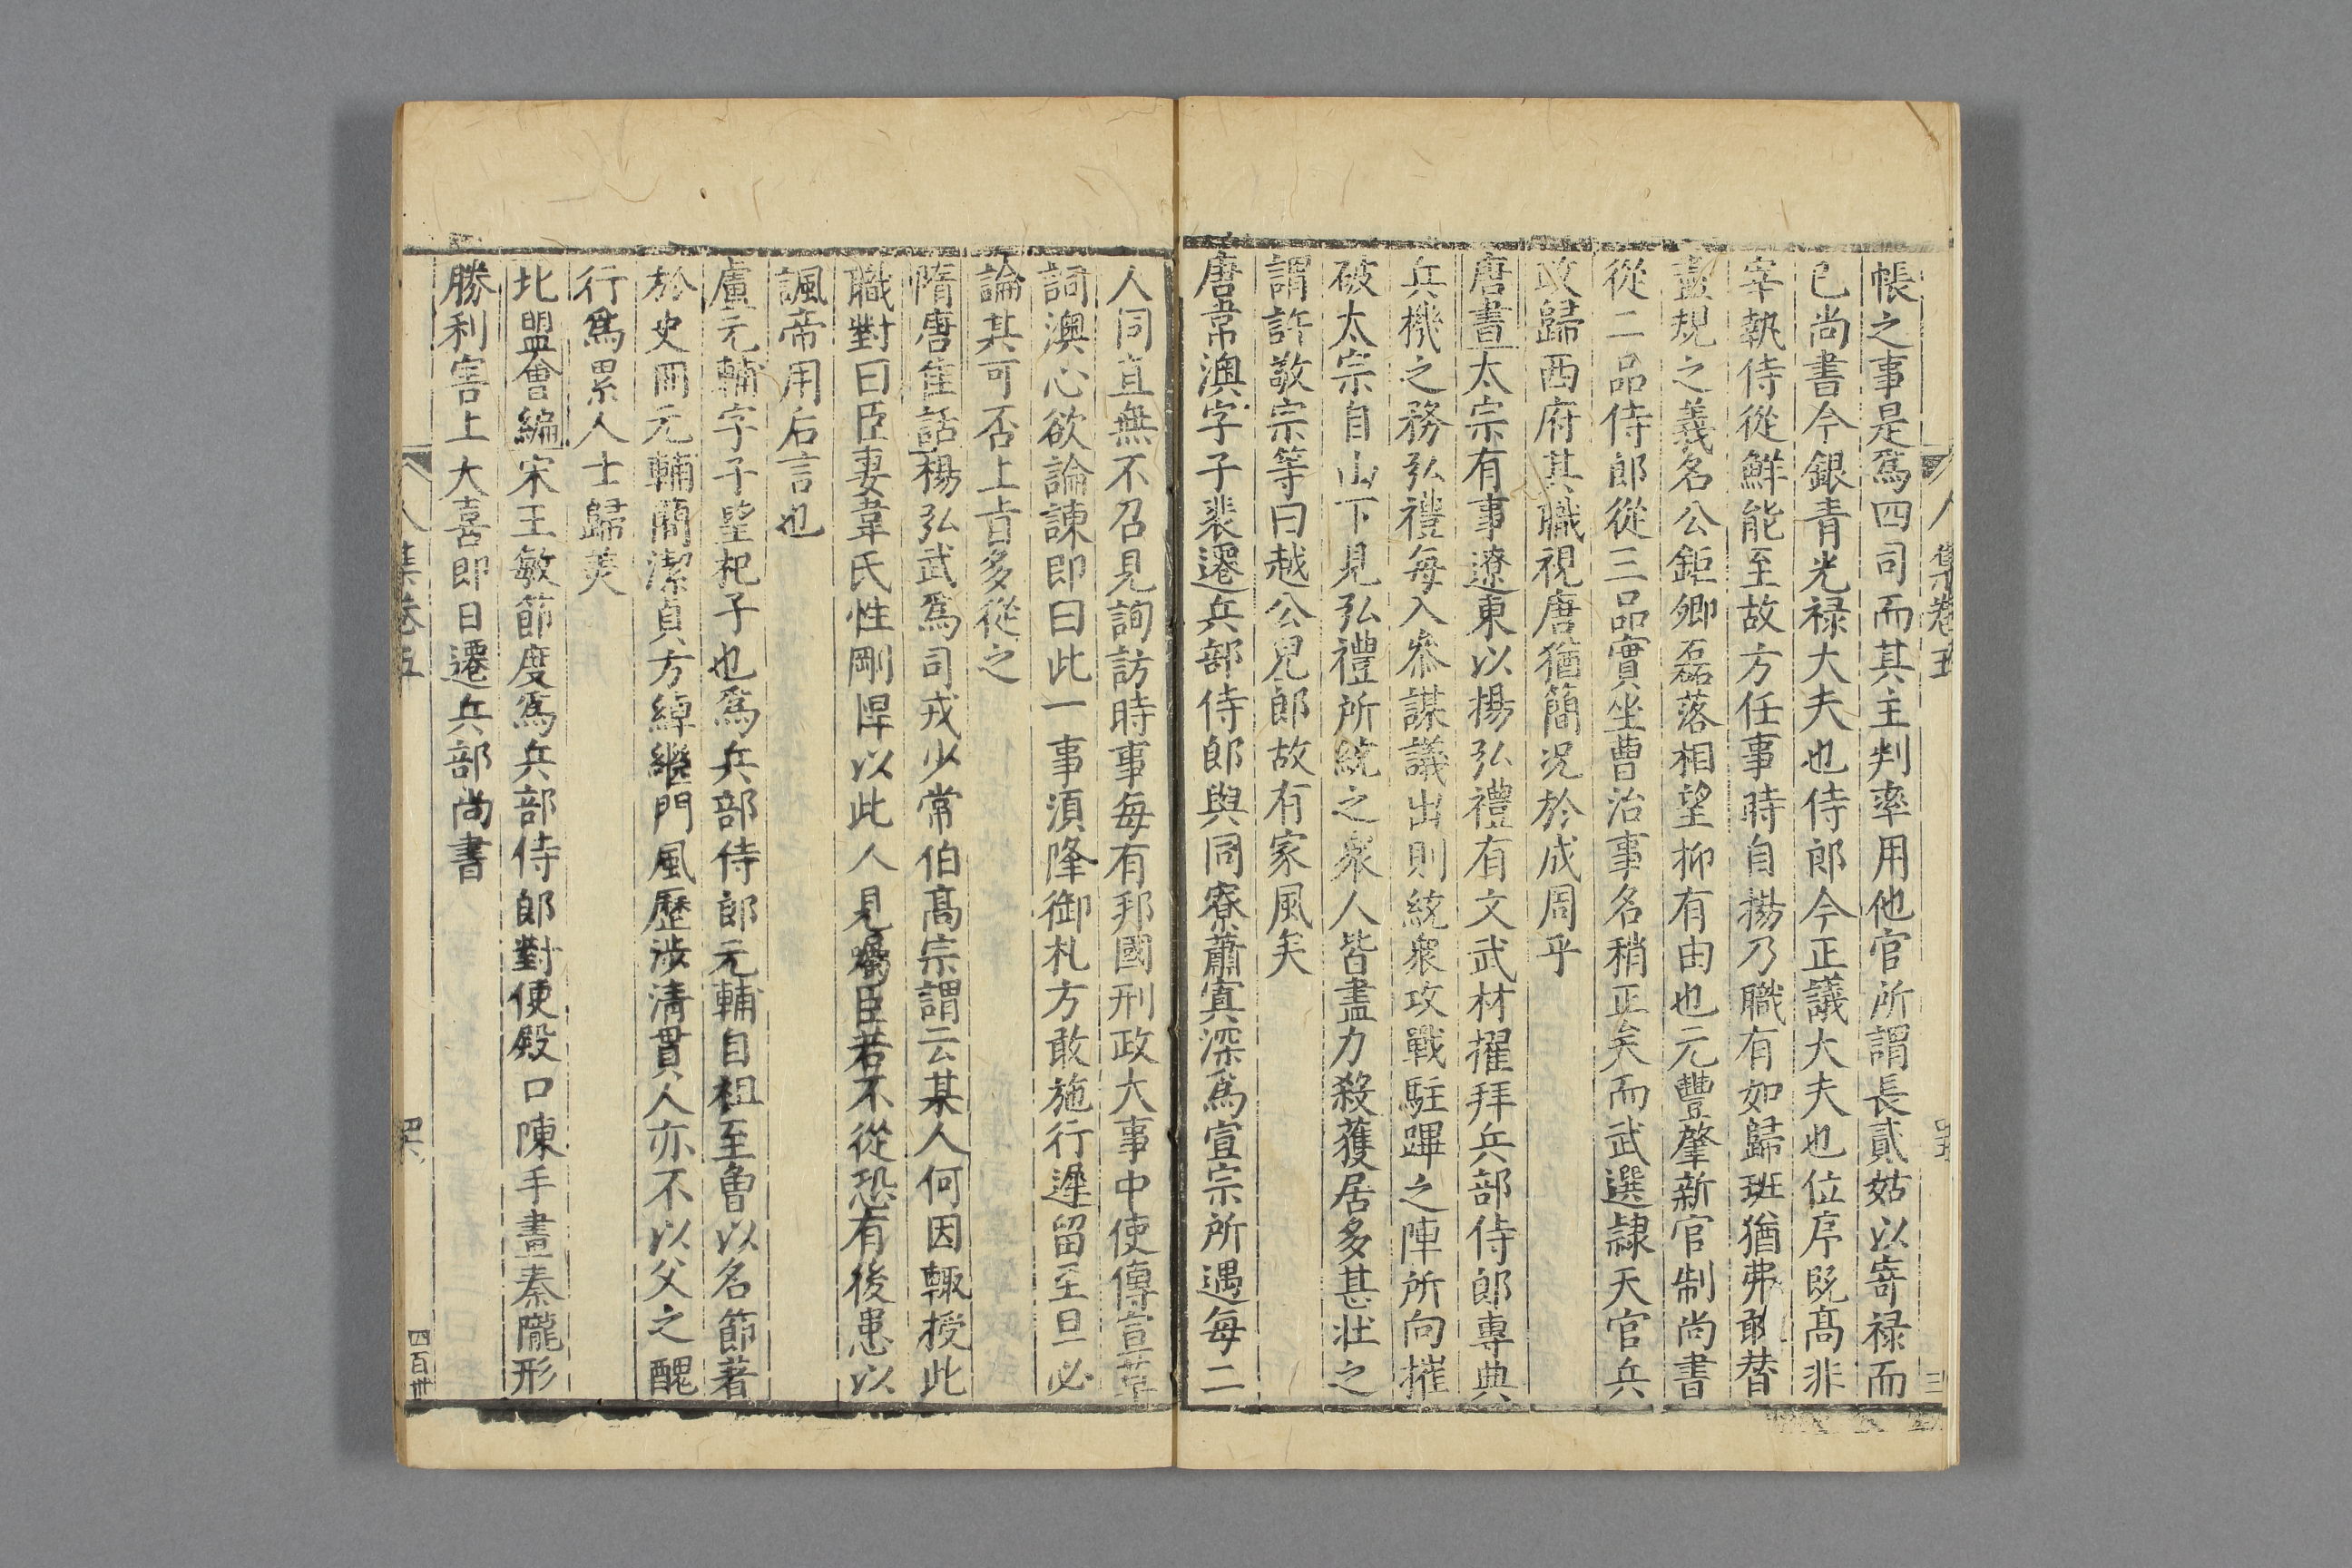 帳之事是爲四司而其主判率用他官所謂長貳姑以寄禄而
已尚書今銀青光禄大夫也侍郎今正議大夫也位序既髙非
宰執侍從鮮能至故方任事時自揚乃職有如歸班猶弗敢替
盡規之義名公鉅卿磊落相望抑有由也元豐肇新官制尚書
從二品侍郎從三品實坐曹治事名稍正矣而武選隷天官兵
政歸西府其職視唐猶簡況於成周乎
唐書太宗有事遼東以揚弘禮有文武材擢拜兵部侍郎專典
兵機之務弘禮每入叅謀議出則統衆攻戰駐蹕之陣所向摧
破太宗自山下見弘禮所統之衆人皆盡力殺獲居多甚壯之
謂許敬宗等曰越公兒郎故有家風矣
唐韋澳字子裴遷兵部侍郎與同寮蕭寘深爲宣宗所遇每二
人同直無不召見詢訪時事每有邦國刑政大事中使傳宣草
詞澳心欲論諌即曰此一事湏降御札方敢施行遲留至旦必
論其可否上㫖多從之
隋唐佳話楊弘武爲司戎少常伯髙宗謂云某人何因輙授此
職對曰臣妻韋氏性剛悍以此人見囑臣若不從恐有後患以
諷帝用后言也
盧元輔字子望杞子也爲兵部侍郎元輔自祖至曾以名節著
於史冊元輔簡潔貞方綽繼門風歷涉清貫人亦不以父之醜
行爲累人士歸美
北盟會編宋王敏節度爲兵部侍郎對使殿口陳手畫秦隴形
勝利害上大喜即日遷兵部尚書
集卷五
四百卅